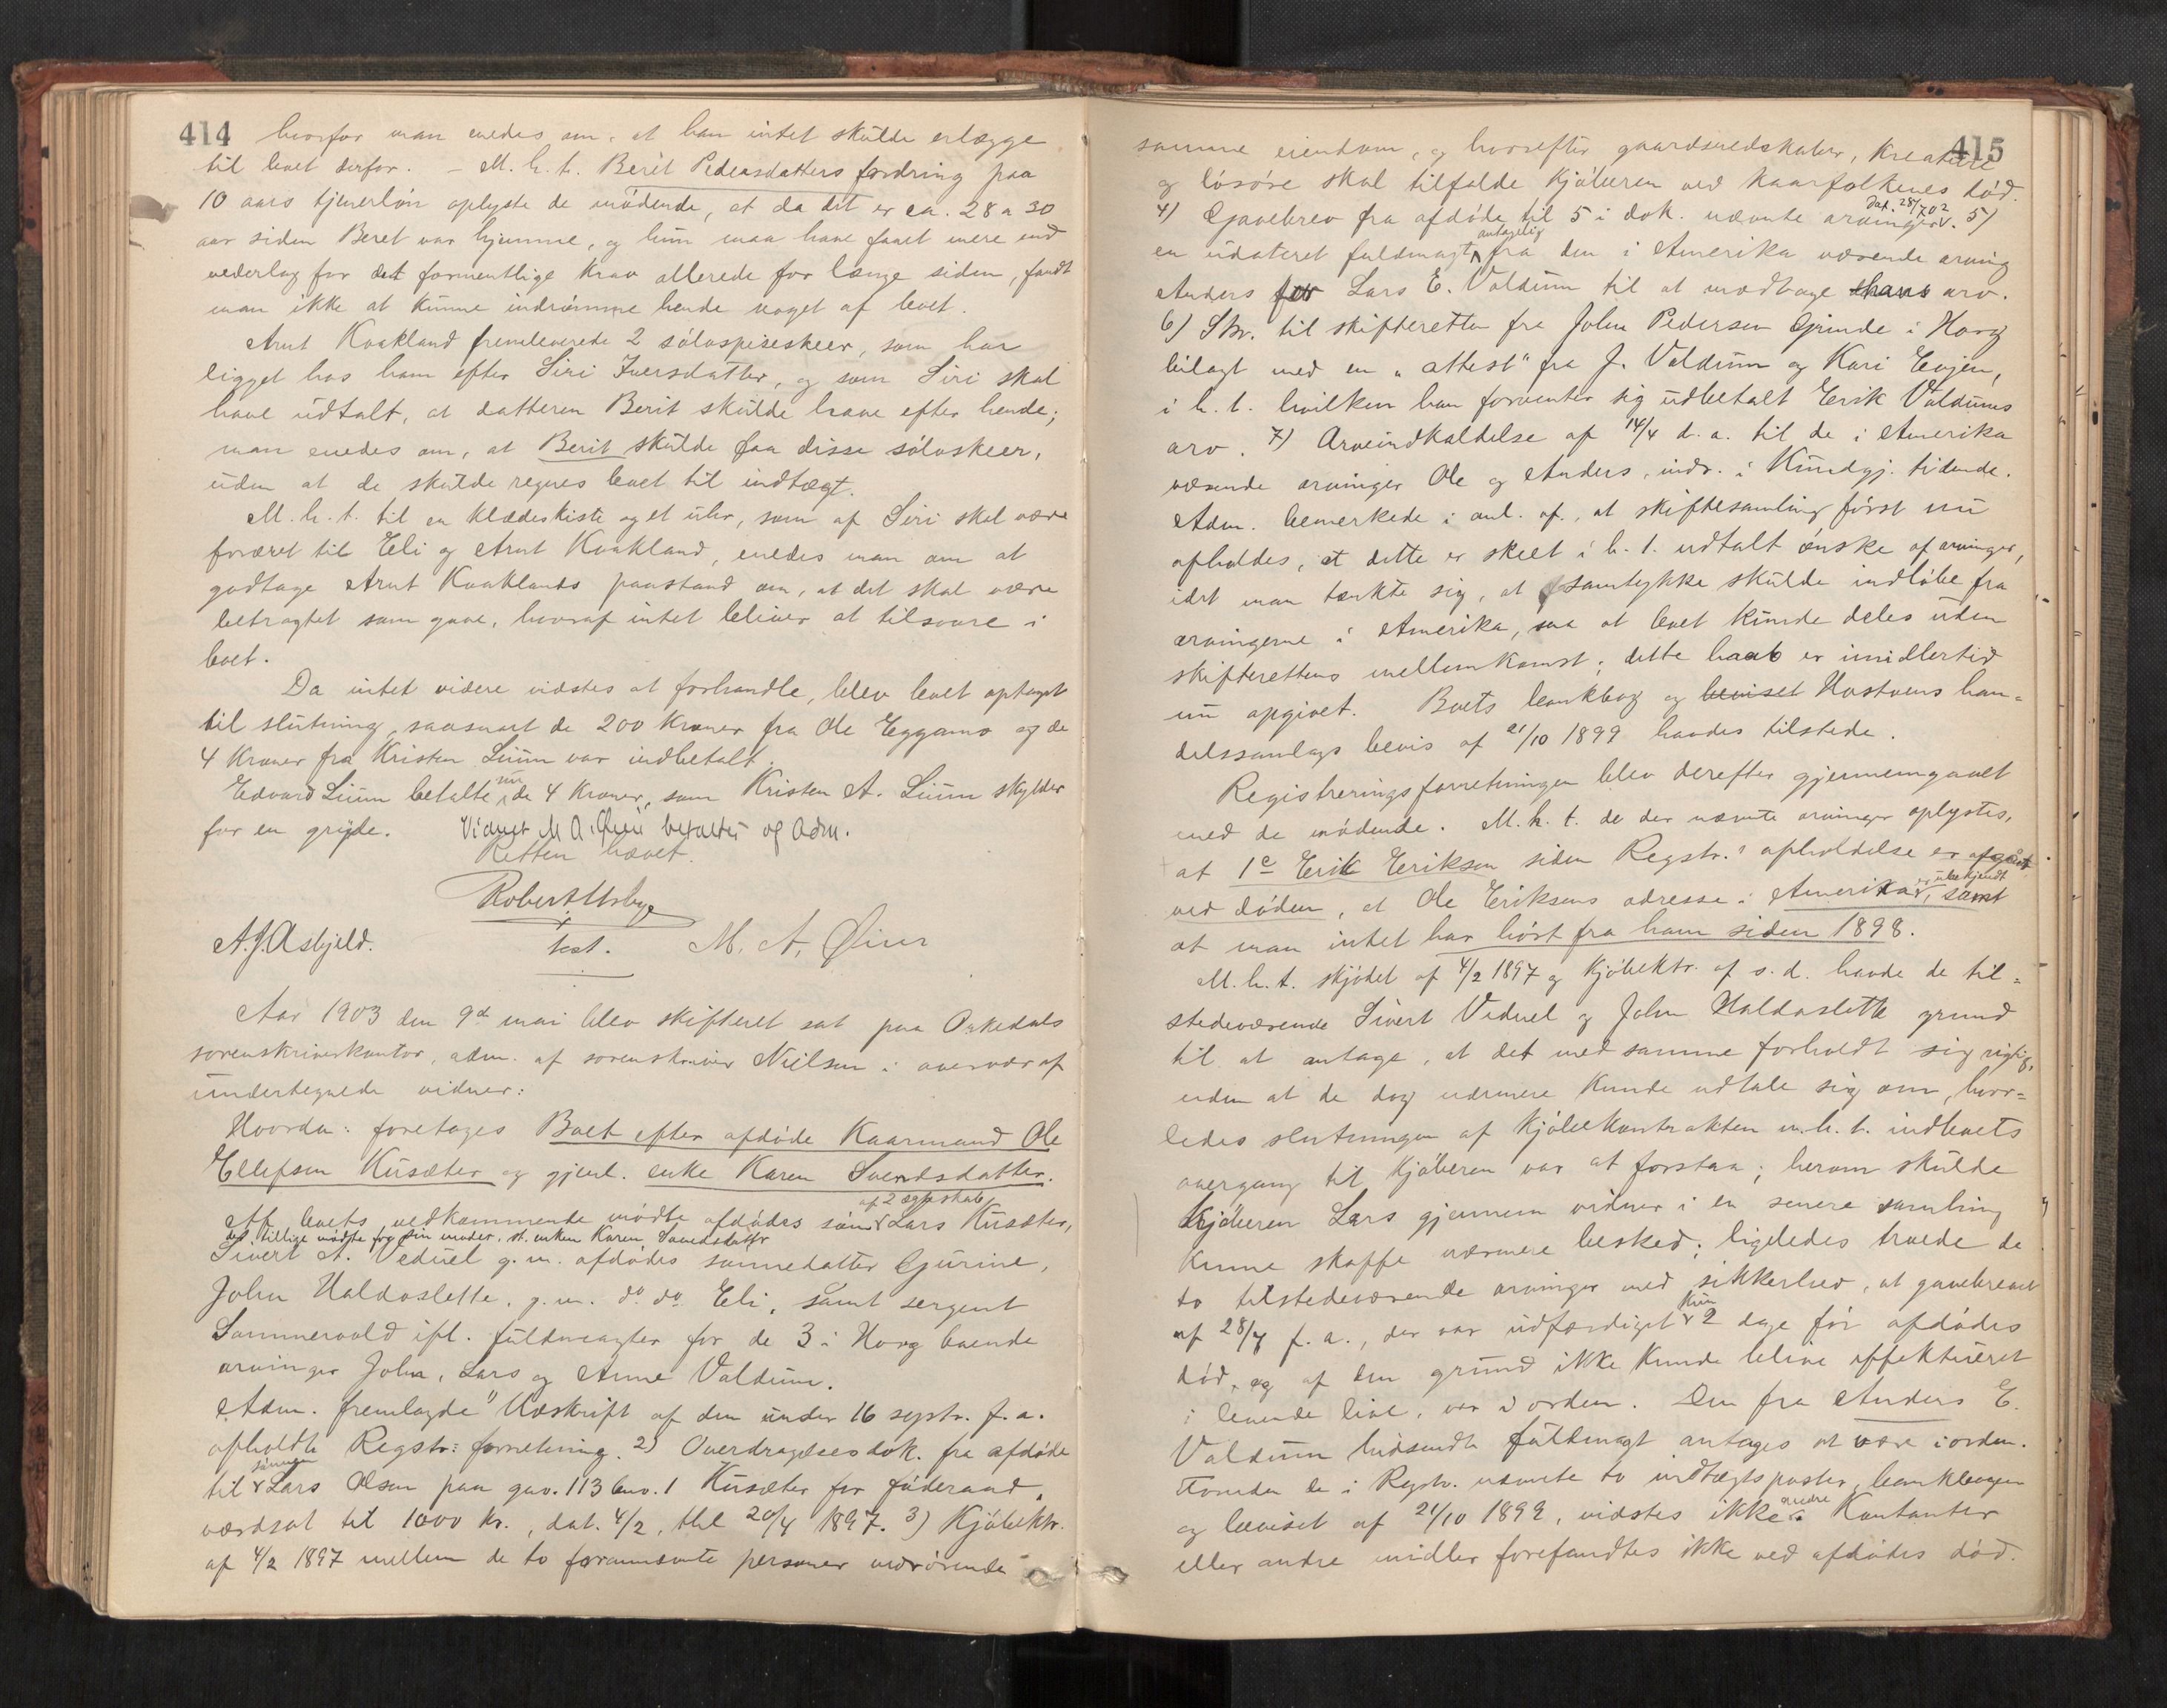 414
hvorfor man enedes om, at han intet skulde erlægge
til boet derfor. – M. h. t. Berit Pedersdatters fordring paa
10 aars tjenerløn oplyste de mødende, at da det er ca. 28 a 30
aar siden Beret var hjemme, og hun maa have faaet mere end
vederlag for det formentlige krav allerede for længe siden, fandt
man ikke at kunne indrømme hende noget af boet.
Arnt Kvakland fremleverede 2 sølvspiseskeer, som har
ligget hos ham efter Siri Iversdatter, og som Siri skal
have udtalt, at datteren Berit skulde have efter hende;
man enedes om, at Berit skulde faa disse sølvskeer,
uden at de skulde regnes boet til indtægt.
M. h. t. til en klædeskiste og et uhr, som af Siri skal være
foræret til Eli og Arnt Kvakland, enedes man om at
godtage Arnt Kvaklands paastand om, at det skal være
betragtet som gave, hvoraf intet bliver at tilsvare i
boet.
Da intet videre vidstes at forhandle, blev boet optaget
til slutning, saasnart de 200 kroner fra Ole Eggamo og de
4 kroner fra Kristen Lium var indbetalt.
Edvard Lium betalte nu de 4 kroner, som Kristen A. Lium skylder
for en gryde. Vidnet M. A. Øien betaltes af adm.
Retten hævet.
Robert Utsbye
kst.
A. J. Asbjeld. M. A. Øien
Aar 1903 den 9de mai blev skifteret sat paa Orkedals
sorenskriverkontor, adm. af sorenskriver Nielsen i overvær af
undertegnede vidner:
Hvorda: foretoges Boet efter afdøde Kaarmand Ole
Ellefsen Kusæter og gjenl. enke Karen Svendsdatter.
Af boets vedkommende mødte afdødes søn af 2 ægteskab Lars Kusæter,
der tillige mødte for sin moder, st. enken Karen Svendsdatter
Sivert A. Veduel g. m. afdødes sønnedatter Gurine,
John Haldoslette, g. m. do do Eli, samt sergent
Sommervold ifl. fuldmagter for de 3 i Horg boende
arvinger John, Lars og Anne Valdum.
Adm. fremlagde 1) Udskrift af den under 16 septr. f. a.
afholdte Registr: forretning. 2) Overdragelsesdok. fra afdøde
til sønnen Lars Olsen paa gno. 113 bno. 1 Kusæter for føderaad,
værdsat til 1000 kr., dat. 4/2, thl. 20/4 1897. 3) Kjøbektr.
af 4/2 1897 mellem de to forannævnte personer vedrørende
415
samme eiendom, og hvorefter gaardsredskaber, kreature
og løsøre skal tilfalde kjøberen ved kaarfolkenes død.
4) Gavebrev fra afdøde til 5 i dok. nævnte arvinger dat. 28/7 02. 5)
en udateret fuldmagt antagelig fra den i Amerika værende arving
Anders for Lars E. Valdum til at modtage hans arv.
6) Skr. til skifteretten fra John Pedersen Grinde i Horg
bilagt med en "attest" fra J. Valdum og Kari Evjen,
i h. t. hvilken han forventer sig udbetalt Erik Valdums
arv. 7) Arveindkaldelse af 14/4 d. a. til de i Amerika
værende arvinger Ole og Anders, indr. i Kundgj. tidende.
Adm. bemerkede i anl. af, at skiftesamling først nu
afholdes, at dette er skeet i h. t. udtalt ønske af arvinger,
idet man tænkte sig, at samtykke skulde indløbe fra
arvingerne i Amerika, saa at boet kunde deles uden
skifterettens mellemkomst; dette haab er imidlertid
nu opgivet. Boets bankbog og beviset Hostvens han=
delssamlags bevis af 21/10 1899 havdes tilstede.
Registreringsforretningen blev derefter gjennemgaaet
med de mødende. M. h. t. de der nævnte arvinger oplystes,
at 1e Erik Eriksen siden Regstr.s afholdelse er afgåt
ved døden, at Ole Eriksens adresse i Amerika er ubekjendt, samt
at man intet har hørt fra ham siden 1898.
M. h. t. skjødet af 4/2 1897 og kjøbektr. af s. d. havde de til=
stedeværende Sivert Veduel og John Haldoslette grund
til at antage, at det med samme forholdt sig rigtig,
uden at de dog nærmere kunde udtale sig om, hvor=
ledes slutningen af kjøbekontrakten m. h. t. indboets
overgang til kjøberen var at forstaa; herom skulde
Kjøberen Lars gjennem vidner i en senere samling
kunne skaffe nærmere besked; ligeledes troede de
to tilstedeværende arvinger med sikkerhed, at gavebrevet
af 28/7 f. a., der var udfærdiget kun 2 dage før afdødes
død, og af den grund ikke kunde blive effektueret
i levende live, var i orden. Den fra Anders E.
Valdum hidsendte fuldmagt antages at være i orden.
Foruden de i Regstr. nævnte to indtægtsposter, bankbogen
og beviset af 21/10 1899, vidstes ikke andre. Kontanter
eller andre midler forefandtes ikke ved afdødes død.